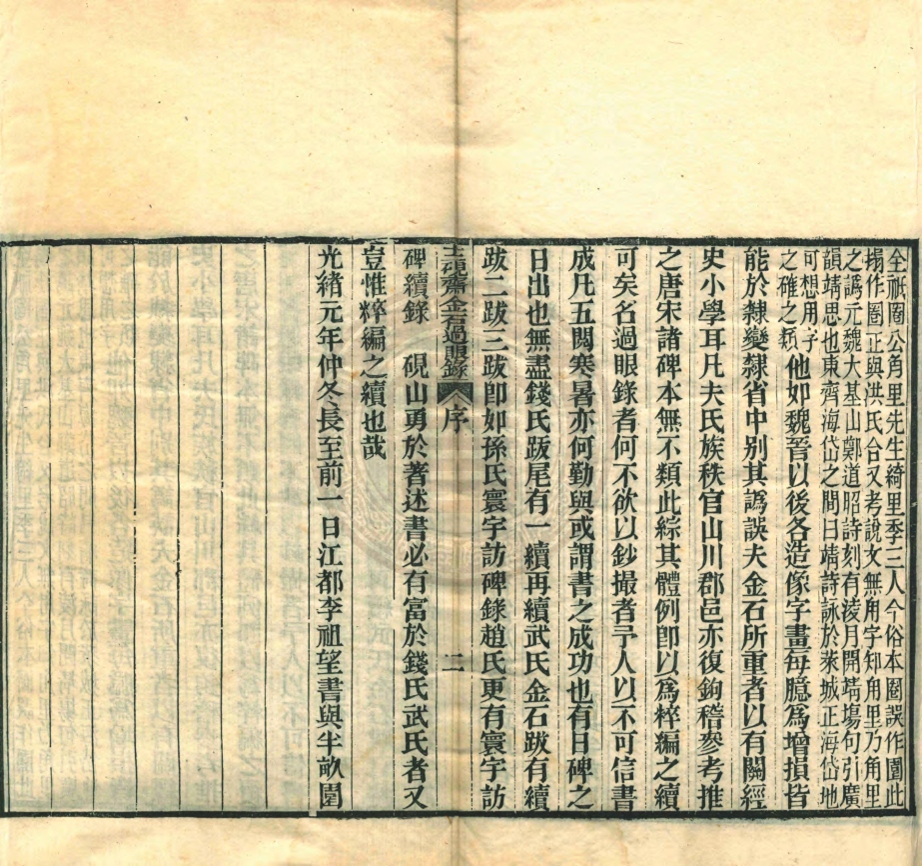 全祇圈公角里先生綺里季三人今俗本圈誤作園此
搨作圈正與洪氏合又考說文無角字知角里乃角里
之譌元魏大基山鄭道昭詩刻有淩月開靖場句引廣
韻靖思也東齊海岱之間曰靖詩詠於萊城正海岱地
可想用字
之確之類他如魏晉以後各造像字畫每臆爲增損皆
能於隸變隸省中别其譌誤夫金石所重者以有關經
史小學耳凡夫氏族秩官山川郡邑亦復鉤稽參考推
之唐宋諸碑本無不類此綜其體例卽以爲粹編之續
可矣名過眼錄者何不欲以鈔撮者予人以不可信書
成凡五閱寒暑亦何勤與或謂書之成功也有日碑之
日出也無盡錢氏跋尾有一續再續武氏金石跋有續
跋二跋三跋卽如孫氏寰宇訪碑錄趙氏更有寰宇訪
十二硯齋金石過眼錄 序 二
碑續錄 硯山勇於著述書必有富於錢氏武氏者又
豈惟粹編之續也哉
光緒元年仲冬長至前一日江都李祖望書與半畝園